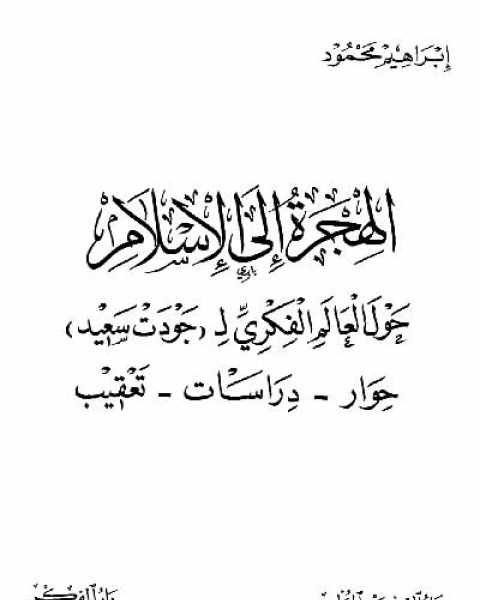 إِبْرَاهِيْمْ مَحْمُوْدْ
الهِجْرَةُ إِلَى الإِسْلَامِ
حَوْلَ الْعَالَمِ الْفِكْرِيِّ لِـ (جَوْدَتْ سَعِيْد)
حِوَار - دِرَاسَات - تَعْقِيْب